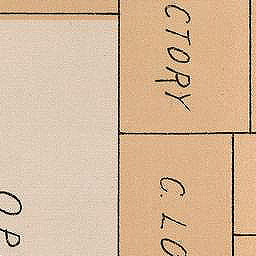 CTORY
C. LO
OP